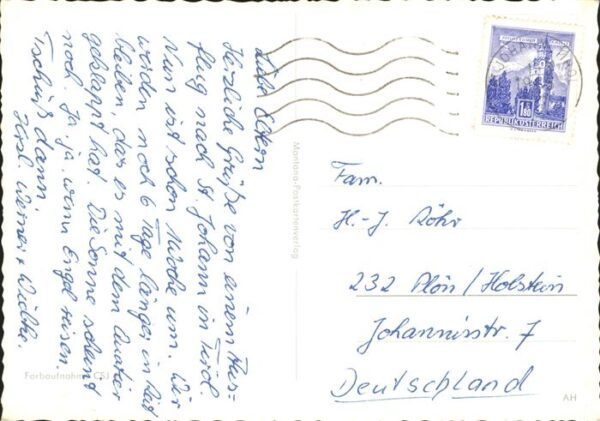 Liebe Eltern
Herzliche Grüße von einem Aus-
flug nach St. Johann in Tirol.
Nun ist schon Woche um. Wir
werden noch 6 Tage länger in Reit
bleiben, da es mit dem Quatier
geklappt hat. Die Sonne scheint
noch. Ja, ja, wenn Engel reisen.
Tschüß dann.
Herzl. Werner + Wiebke.
Montana-Postkartenverlag
Farbaufnahme CSJ
1.80
REPUBLIK ÖSTERREICH
Fam.
H.-J. Röhr
232 Plön/Holstein
Johannisstr. 7
Deutschland
AH